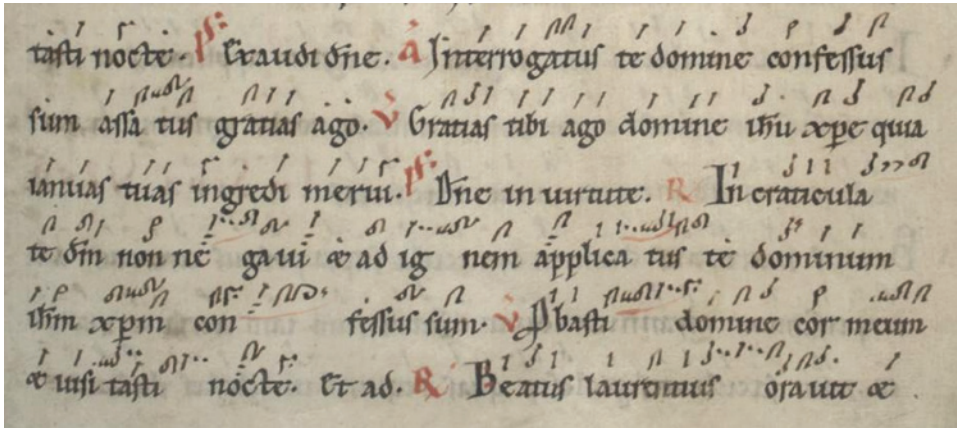 tasti nocte. ps: Exaudi dñe. A Interrogatus te domine confessus
sum assa tus gratias ago. V Gratias tibi ago domine ihu xpe quia
ianuas tuas ingredi merui. ps: Dñe in uirtute. R In craticula
te dm̄ non ne gaui & ad ig nem applica tus te dominum
ihm xpm con fessus sum. V Pbasti domine cor meum
& uisi tasti nocte. Et ad. R Beatus laurentius orauit &